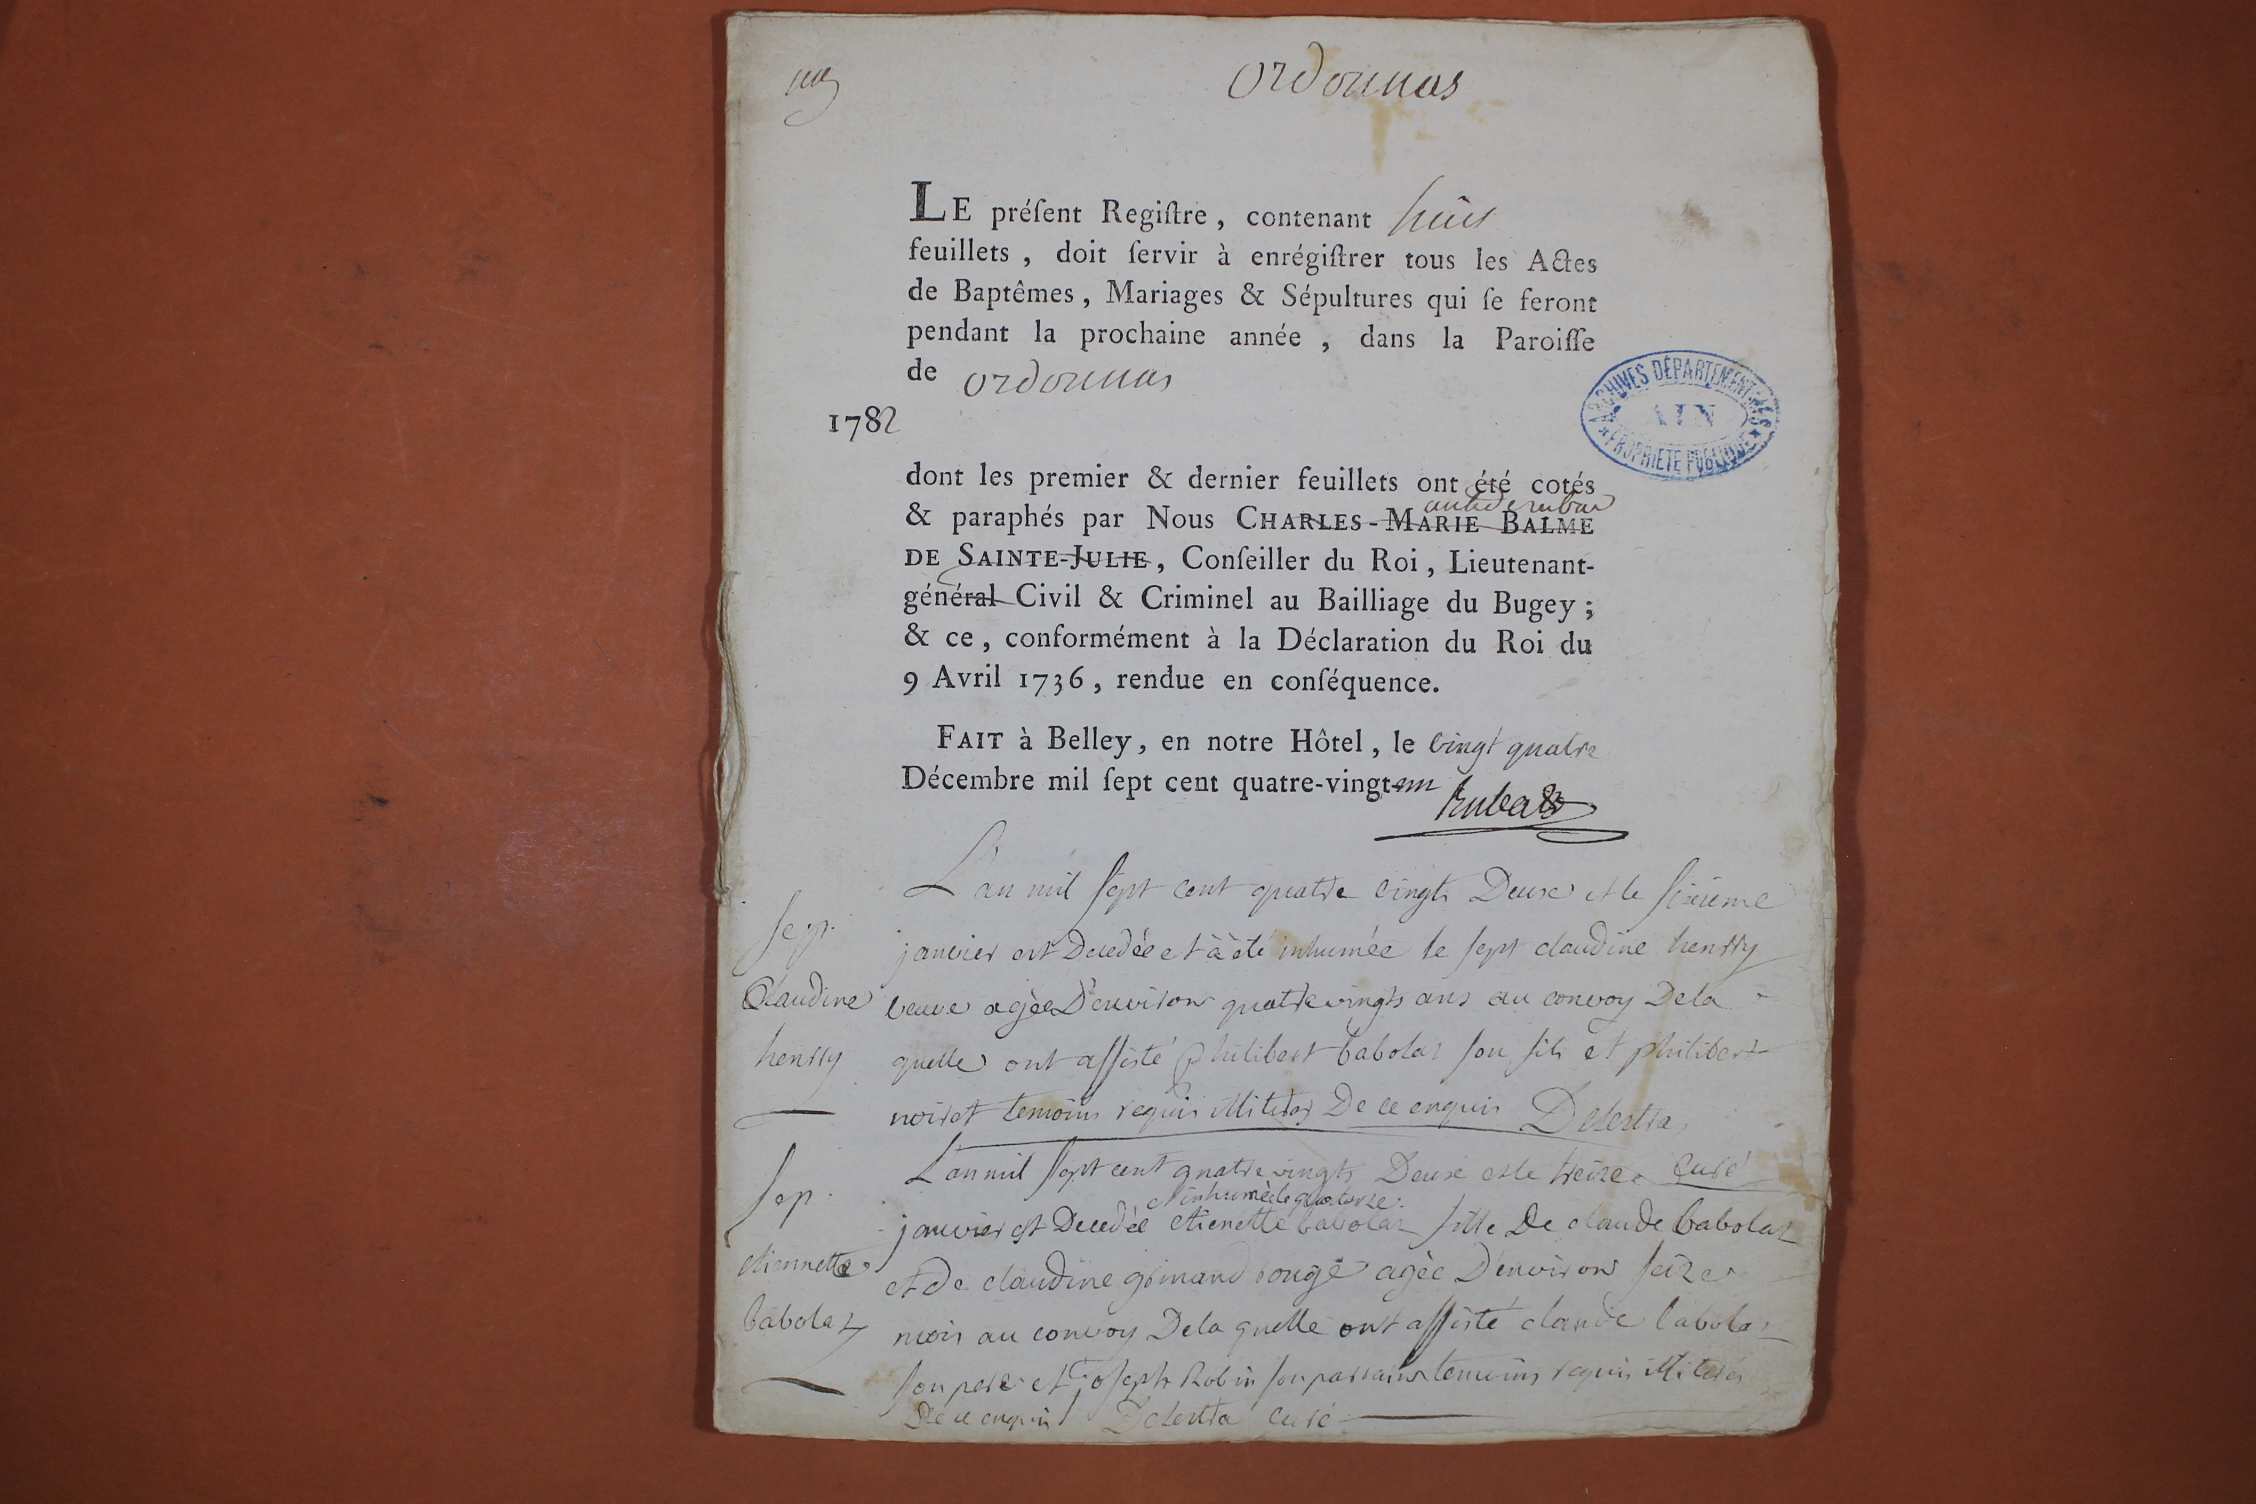 ordonnas
LE préſent Regiſtre, contenant huit
feuillets, doit ſervir à enrégiſtrer tous les Actes
de Baptêmes, Mariages & Sépultures qui ſe feront
pendant la prochaine année, dans la Paroiſſe
de ordonnas
1782
ARCHIVES DÉPARTEMENTALES
AIN
* PROPRIÉTÉ PUBLIQUE *
dont les premier & dernier feuillets ont été cotés
& paraphés par Nous CHARLES-MARIE BALME
DE SAINTE-JULIE, Conſeiller du Roi, Lieutenant-
général Civil & Criminel au Bailliage du Bugey;
& ce, conformément à la Déclaration du Roi du
9 Avril 1736, rendue en conſéquence.
FAIT à Belley, en notre Hôtel, le vingt quatre
Décembre mil ſept cent quatre-vingt-un
Rubat
L'an mil sept cent quatre vingts Deux et le sixieme
sep.
janvier est Decedée et à été inhumée le sept claudine henrry
Claudine
veuve agée D'environ quatre vingts ans au convoy De la
henrry
quelle ont assisté philibert babolat son fils et philibert
noiret temoins requis illiterés De ce enquis Delertra
curé
L'an mil sept cent quatre vingts Deux et le treize
sep.
et inhumée le quatorze
janvier est Decedée etienette babolat fille De claude babolat
etiennette
et De claudine grinand rouge agée D'environ seize
babolat
mois au convoy De la quelle ont assisté claude babolat
son pere et joseph Robin son parrain temoins requis illiterés
De ce enquis Delertra curé